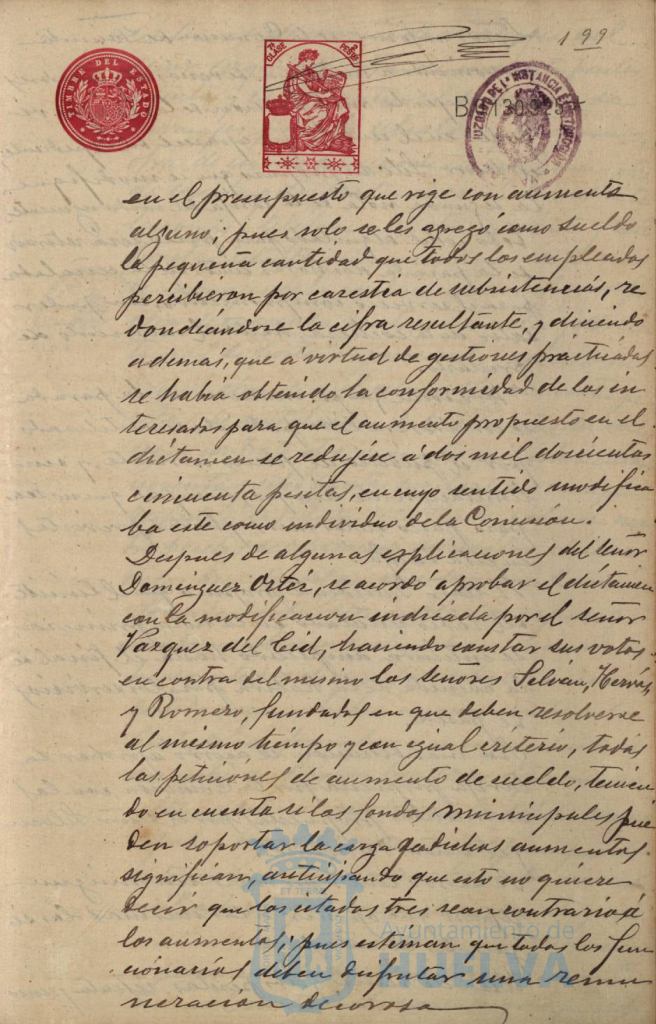 199
TIMBRE DEL ESTADO
7ª CLASE
2 PESETAS
JUZGADO DE 1ª INSTANCIA E INSTRUCCION
en el presupuesto que rige con aumento
alguno; pues solo se les agregó como sueldo
la pequeña cantidad que todos los empleados
percibieron por carestia de subsistencias, re
dondeándose la cifra resultante, y diciendo
además, que á virtud de gestiones practicadas
se habia obtenido la conformidad de los in
teresados para que el aumento propuesto en el
dictámen se redujese á dos mil doscientas
cincuenta pesetas, en cuyo sentido modifica
ba este como individuo de la Comisión.
Despues de algunas explicaciones del señor
Dominguez Ortiz, se acordó aprobar el dictámen
con la modificacion indicada por el señor
Vazquez del Cid, haciendo constar sus votos
en contra del mismo los señores Selván, Hervás
y Romero, fundados en que deben resolverse
al mismo tiempo y con igual criterio, todas
las peticiónes de aumento de sueldo, tenien
do en cuenta si los fondos municipales pue
den soportar la carga que dichos aumentos
significan, anticipando que esto no quiere
decir que los citados tres sean contrarios á
los aumentos; pues estiman que todos los fun
cionarios deben disfrutar una remu
neracion decorosa
Ayuntamiento de
HUELVA